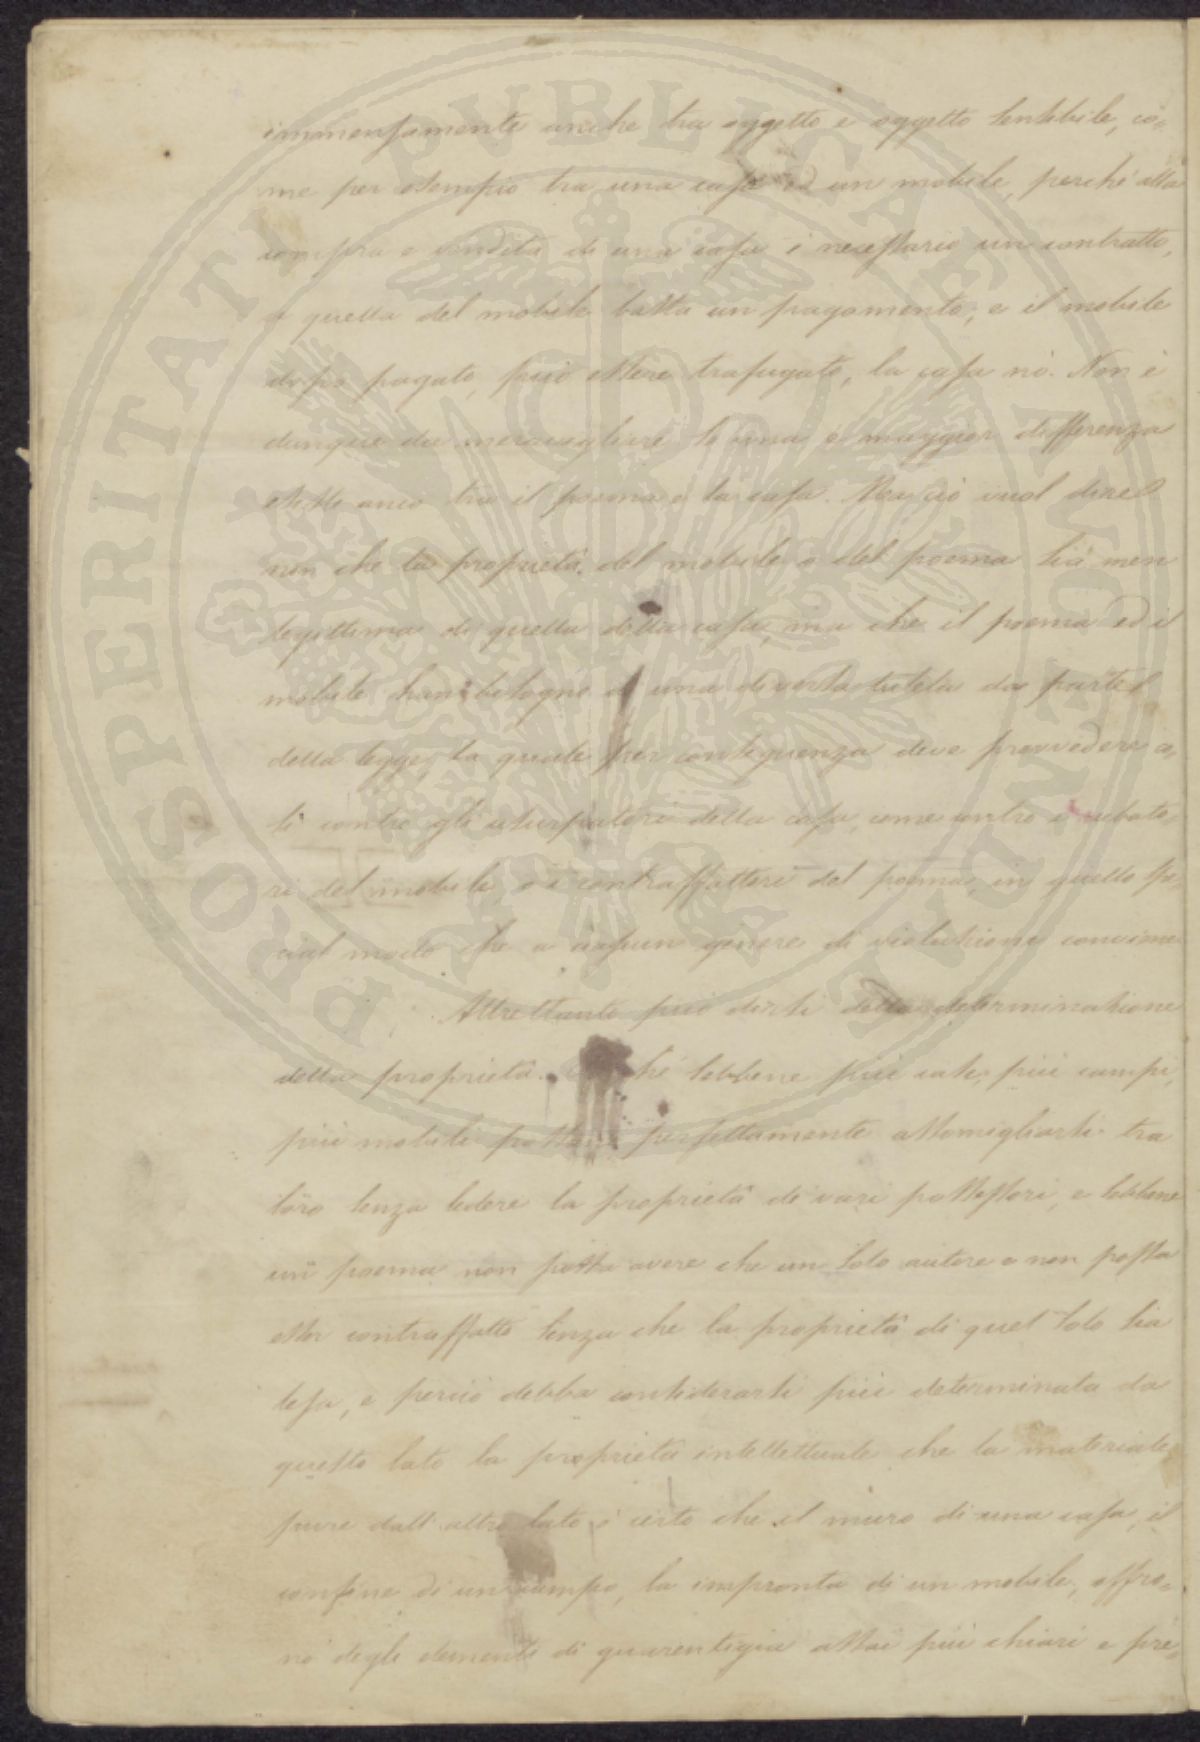 immensamente anche tra oggetto e oggetto sensibile, co=
me per esempio tra una casa ed un mobile, perchè alla
compra e vendita di una casa è necessario un contratto,
a quella del mobile basta un pagamento, e il mobile
dopo pagato, può essere trafugato, la casa nò. Non è
dunque da meravigliare se una maggior differenza
esiste anco tra il poema e la casa. Ma ciò vuol dire
non che la proprietà del mobile o del poema sia men
legittima di quella della casa, ma che il poema ed il
mobile han bisogno di una diversa tutela da parte
della legge, la quale per conseguenza deve provvedere a=
sì contro gli usurpatori della casa, come contro i rubato=
ri del mobile, o i contraffattori del poema, in quello spe
cial modo che a ciascun genere di violazione conviene
Altrettanto può dirsi della determinazione
della proprietà. chè sebbene più case, più campi,
più mobili possano perfettamente assomigliarsi tra
loro senza ledere la proprietà di varj possessori, e sebbene
un poema non possa avere che un solo autore e non possa
esser contraffatto senza che la proprietà di quel solo sia
lesa, e perciò debba considerarsi più determinata da
questo lato la proprietà intellettuale che la materiale
pure dall'altro lato è certo che il muro di una casa, il
confine di un campo, la impronta di un mobile, offro=
no degli elementi di guarentigia assai più chiari e pre=
PROSPERITATI PVBLICAE AVGENDAE